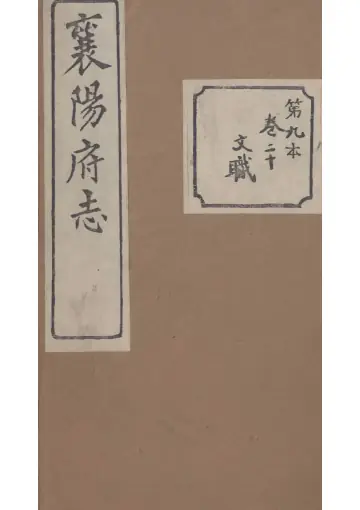 襄陽府志
第九本
卷二十
文職